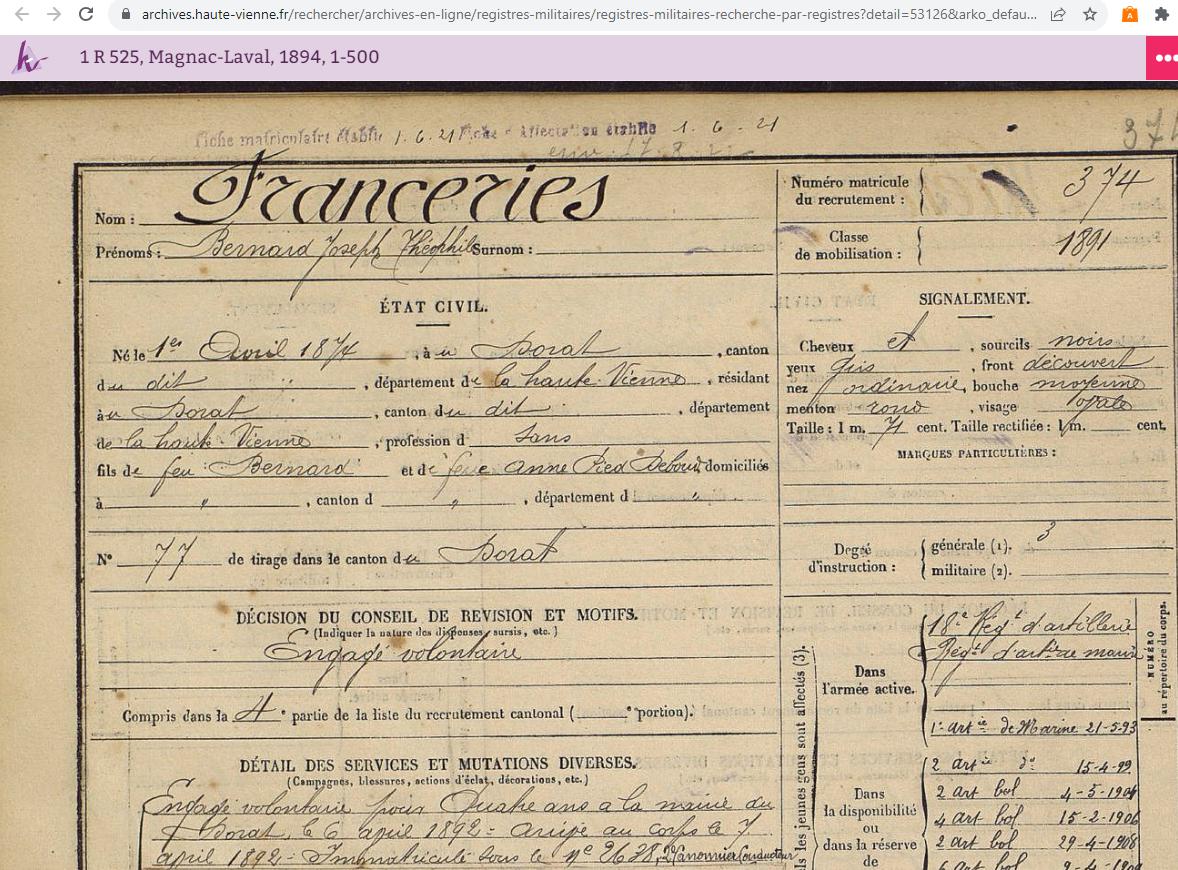 archives.haute-vienne.fr/rechercher/archives-en-ligne/registres-militaires/registres-militaires-recherche-par-registres?detail=53126&arko_defau...
1 R 525, Magnac-Laval, 1894, 1-500
Fiche matriculaire établie 1.6.21 Fiche d'Affectation établie 1.6.21
374
Franceries
Nom :
Prénoms : Bernard Joseph Théophile Surnom :
Numéro matricule du recrutement : 374
Classe de mobilisation : 1891
ÉTAT CIVIL.
Né le 1er Avril 1874, à u Dorat, canton
du dit, département de la haute-Vienne, résidant
à u Dorat, canton du dit, département
de la haute-Vienne, profession d Sans
fils de feu Bernard et de feue Anne Pied Deboux domiciliés
à ", canton d ", département d "
N° 77 de tirage dans le canton du Dorat
SIGNALEMENT.
Cheveux et, sourcils noirs
yeux gris, front découvert
nez ordinaire, bouche moyenne
menton rond, visage ovale
Taille : 1 m. 71 cent. Taille rectifiée : 1 m. cent.
MARQUES PARTICULIÈRES :
Degré d'instruction : générale (1). 3
militaire (2).
DÉCISION DU CONSEIL DE REVISION ET MOTIFS.
(Indiquer la nature des dispenses, sursis, etc.)
Engagé volontaire
Compris dans la 4e partie de la liste du recrutement cantonal ( e portion).
DÉTAIL DES SERVICES ET MUTATIONS DIVERSES.
(Campagnes, blessures, actions d'éclat, décorations, etc.)
Engagé volontaire pour Quatre ans a la mairie du
Dorat, le 6 april 1892 = arrivé au corps le 7
april 1892 - Immatriculé sous le n° 2638, 2e Canonnier Conducteur
NUMÉRO
au répertoire du corps.
ls les jeunes gens sont affectés (3).
Dans l'armée active.
18e Régt d'artillerie
Régt d'artie de marine
1er artie de Marine 21-5-93
Dans la disponibilité ou dans la réserve de
2 artie do 15-4-99
2 art bol 4-5-1904
4 art bol 15-2-1906
2 art bol 29-4-1908
6 art bol